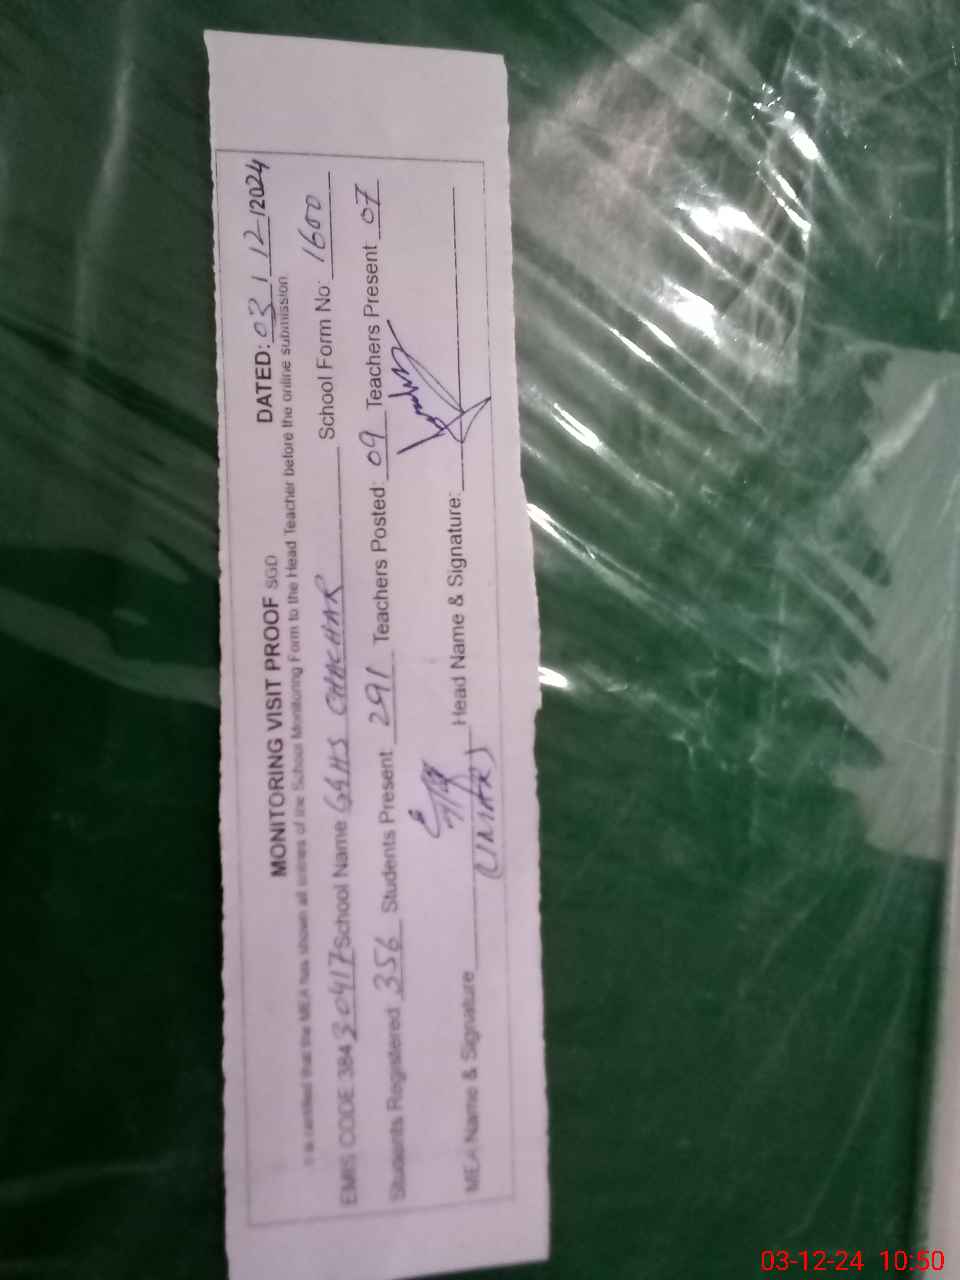 MONITORING VISIT PROOF SGD DATED: 03/12/2024
It is certified that the MEA has shown all entries of the School Monitoring Form to the Head Teacher before the online submission.
EMIS CODE 38430417 School Name GGHS CHACHAR School Form No: 1600
Students Registered 356 Students Present 291 Teachers Posted: 09 Teachers Present 07
MEA Name & Signature (UMAR) Head Name & Signature:
03-12-24 10:50